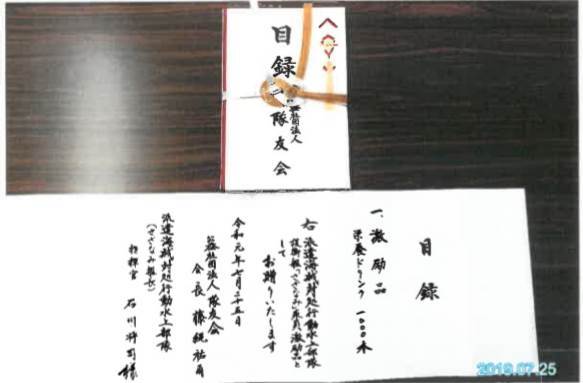 目録
公益社団法人
隊友会
目録
一、激励品
栄養ドリンク 一〇〇〇本
右 派遣海賊対処行動水上部隊
護衛艦「さざなみ」乗員激励品と
して
お贈りいたします
令和元年七月二十五日
公益社団法人隊友会
会長 藤縄祐爾
派遣海賊対処行動水上部隊
(さざなみ艦長)
指揮官 石川将司様
2019.07.25